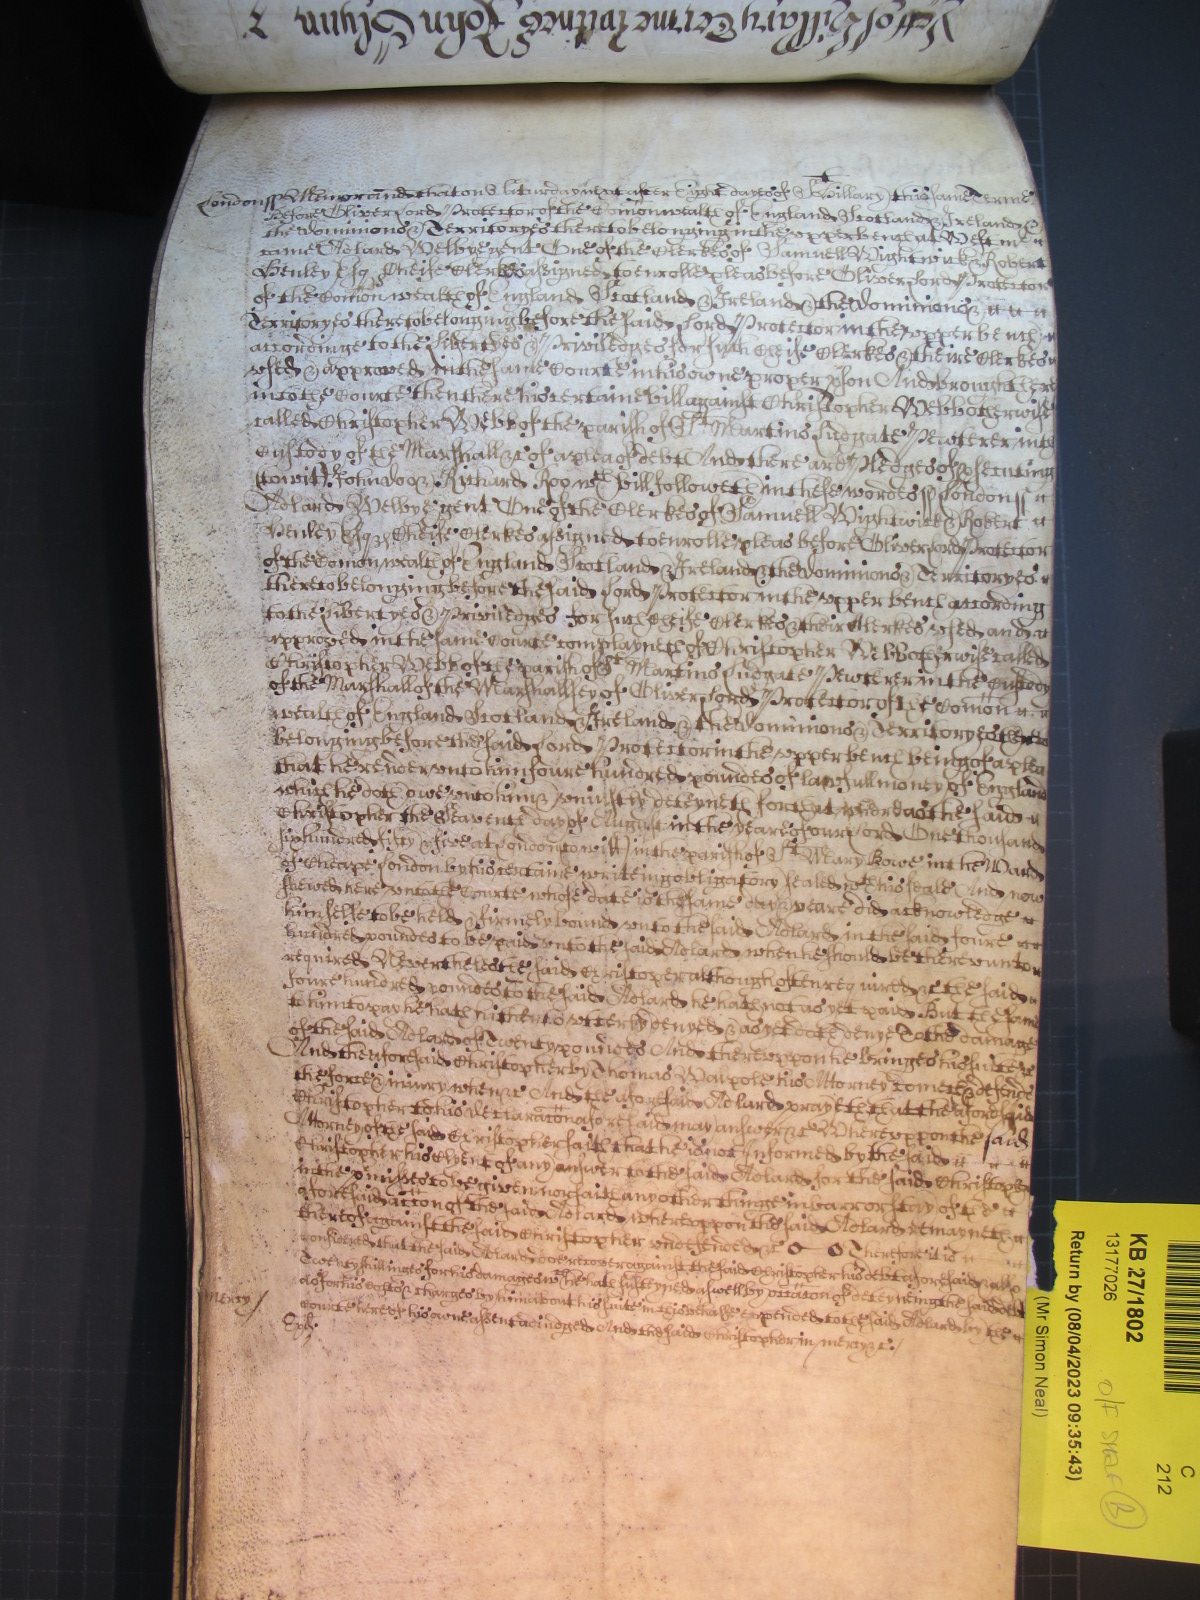 of Hillary Terme witnes John Glynn
London ss Memorand that on Saturday next after Eight dayes of St Hillary this same Terme
before Oliver Lord Protector of the Comonwealth of England Scotland & Ireland &
the Dominions & Territoryes thereto belonging in the upper bench at Westmr
came Adlard Welbye gent One of the Clerkes of Samuell Wightwick & Robert
Henley Esqs Cheife Clerkes assigned to enrolle pleas before Oliver Lord Protector
of the Comonwealth of England Scotland & Ireland & the Dominions &
Territoryes thereto belonging before the said Lord Protector in the upper bench
accordinge to the Libertyes & Priviledges for such Cheife Clerkes & theire Clerkes
used & approved in the same Courte in his owne proper pson And brought here
into the Courte then there his certaine bill against Christopher Webb otherwise
called Christopher Webb of the parish of St Martins Ludgate Pewterer in the
Custody of the Marshall &c of a plea of debt And there are Pledges of psecuting
(to wit) John Doo & Richard Roo wch bill followeth in these wordes ss London ss
Adlard Welbye gent One of the Clerkes of Samuell Wightwick & Robert
Henley Esqs Cheife Clerkes assigned to enrolle pleas before Oliver Lord Protector
of the Comonwealth of England Scotland & Ireland & the Dominions & Territoryes
thereto belonging before the said Lord Protector in the upper bench according
to the Libertyes & Priviledges for such Cheife Clerkes & their Clerkes used and
approved in the same Courte complayneth of Christopher Webb otherwise called
Christopher Webb of the parish of St Martins Ludgate Pewterer in the Custody
of the Marshall of the Marshallsey of Oliver Lord Protector of the Comon
wealth of England Scotland & Ireland & the Dominions & Territoryes thereto
belonging before the said Lord Protector in the upper bench being of a plea
that he render unto him foure hundred poundes of lawfull money of England
which he doth owe unto him & uniustly deteyneth for that wheras the said
Christopher the Seaventh day of August in the yeare of our Lord One thousand
six hundred fifty & five at London (to wit) in the parish of St Mary Bowe in the Ward
of Cheape London by his certaine writeing obligatory sealed wth his seale And now
shewed here unto the Courte whose date is the same day & yeare did acknowledge
himselfe to be held & firmely bound unto the said Adlard in the said foure
hundred poundes to be paid unto the said Adlard when he should be thereunto
required Neverthelesse the said Christopher although often required &c the said
foure hundred poundes to the said Adlard he hath not as yet paid But the same
to him to pay he hath hitherto utterly denyed & as yet doth denye To the damage
of the said Adlard of Twenty poundes And thereuppon he bringes his suite &c
And the aforesaid Christopher by Thomas Walpole his Attorney cometh & defende
the force & iniury when &c And the aforesaid Adlard prayeth that the aforesaid
Christopher to his declaracon aforesaid may answer &c Whereuppon the said
Attorney of the said Christopher saith that he is not informed by the said
Christopher his Clyent of any answer to the said Adlard for the said Christopher
in the pmisses to be given nor saith any other thinge in barr or stay of the
aforesaid accon of the said Adlard whereuppon the said Adlard remayneth
thereof against the said Christopher undefended &c Therefore it is
considered that the said Adlard doe recover against the said Christopher his debt aforesaid
Twenty shillinges for his damages wch he hath susteyned aswell by occacon of deteyneing the said debt
as for his Costes & charges by him about his suite in this behalfe expended to the said Adlard by the
mercy / Courte here of his owne assent adiudged And the said Christopher in mercy &c
KB 27/1802
13177026
Return by (08/04/2023 09:35:43)
(Mr Simon Neal)
C
212
O/F